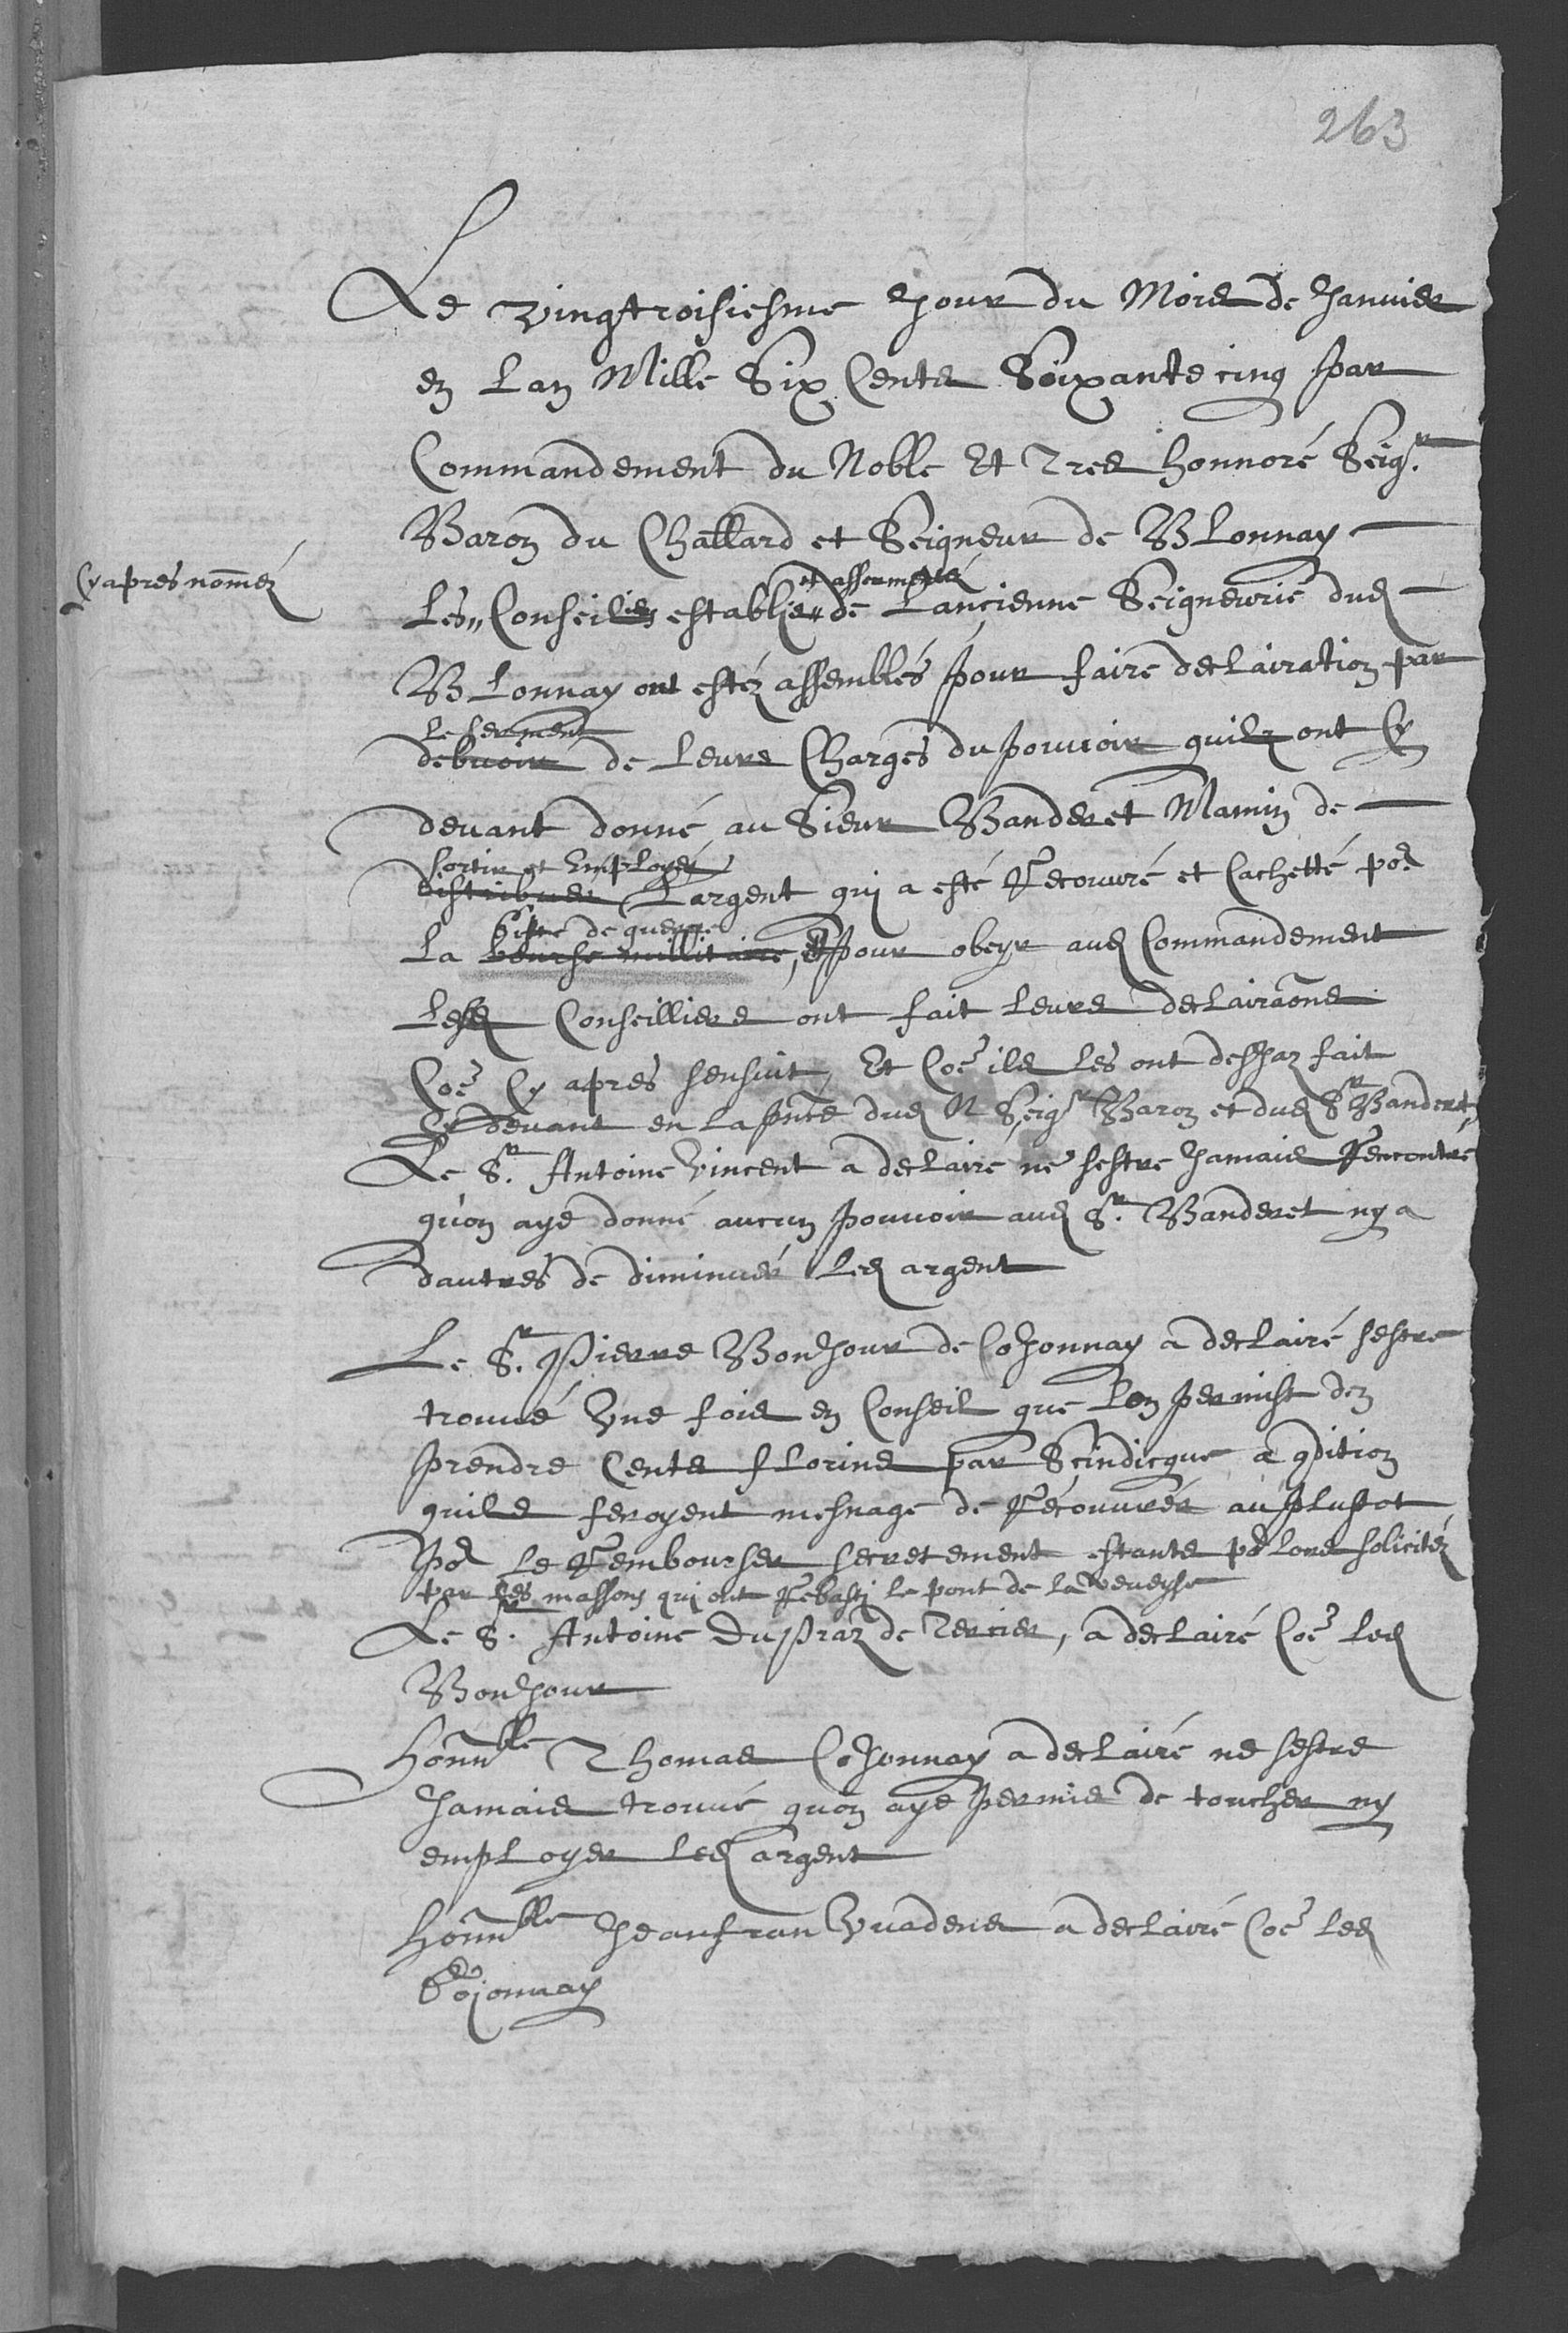 263
Le vingtroisiesme Jour du Mois de Janvier
en Lan Mille Six Cents Soixante cinq par
Commandement du Noble Et Tres honnoré Seigr.
Baron du Chastlard et Seigneur de Blonnay
Cy apres nom̃ez
et assermentés
Les Conseillers establis de Lancienne Seigneurie dud
Blonnay ont estéz assemblés pour faire declairation par
le serment
debvoir de Leurs Charges du pouvoir quilz ont Cy
devant donné au Sieur Banderet Mamin de
sortir et Employer
distribuer Largent qui a esté Recouvré et Cachetté por
Giste de guerre
La bourse millitaire, Et pour obeyr aud Commandement
Lesd Conseilliers ont fait leurs declairaõns
Coẽ Cy apres sensuit, Et Coẽ ils les ont desjaz fait
Cy devant en la pñce dud N Seigr Baron et dud Sr Banderet,
Le Sr. Antoine Vincent a declairé ne sestre Jamais Rencontré
quon aye donné aucun pouvoir aud Sr. Banderet ny a
dautres de diminuer led argent
Le Sr. Pierre Bonjour de Cojonnay a declairé sestre
trouvé Une fois en Conseil que Lon permist den
prendre Cents florins par Scindicque a 9dition
quils feroyent mesnage de Recouvrer au plustot
por le Rembourser secretement estants por lors solicitéz
par les massons qui ont Rebasti le pont de la Veveyse
Le Sr. Antoine Dupraz de Tercier, a declairé Coẽ led
Bonjour
Hoñnble Thomas Cojonnay a declairé ne sestre
Jamais trouvé quon aye permis de toucher ny
employer led argent
Hoñnble Jeanfran Vuadens a declairé Coẽ led
Cojonnay